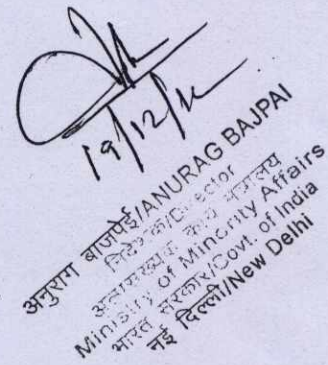 19/12/16
अनुराग बाजपेई/ANURAG BAJPAI
निदेशक/Director
अल्पसंख्यक कार्य मंत्रालय
Ministry of Minority Affairs
भारत सरकार/Govt. of India
नई दिल्ली/New Delhi